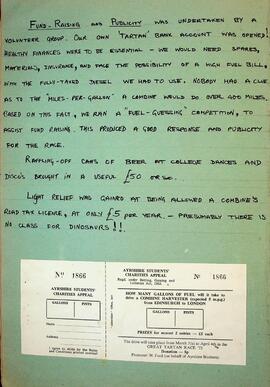 FUND-RAISING AND PUBLICITY WAS UNDERTAKEN BY A
VOLUNTEER GROUP. OUR OWN 'TARTAN' BANK ACCOUNT WAS OPENED!
HEALTHY FINANCES WERE TO BE ESSENTIAL - WE WOULD NEED SPARES,
MATERIALS, INSURANCE, AND FACE THE POSSIBILITY OF A HIGH FUEL BILL,
WITH THE FULLY-TAXED DIESEL WE HAD TO USE. NOBODY HAD A CLUE
AS TO THE "MILES-PER-GALLON" A COMBINE WOULD DO OVER 400 MILES.
BASED ON THIS FACT, WE RAN A "FUEL-GUESSING" COMPETITION, TO
ASSIST FUND RAISING. THIS PRODUCED A GOOD RESPONSE AND PUBLICITY
FOR THE RACE.
RAFFLING-OFF CANS OF BEER AT COLLEGE DANCES AND
DISCO'S BROUGHT IN A USEFUL £50 OR SO..
LIGHT RELIEF WAS GAINED AT BEING ALLOWED A COMBINE'S
ROAD TAX LICENCE, AT ONLY £5 PER YEAR - PRESUMABLY THERE IS
NO CLASS FOR DINOSAURS!!!
Nº 1866
AYRSHIRE STUDENTS'
CHARITIES APPEAL
GALLONS PINTS
AYRSHIRE STUDENTS'
CHARITIES APPEAL
Nº 1866
HOW MANY GALLONS OF FUEL will it take to
drive a COMBINE HARVESTER
from EDINBURGH to LONDON
GALLONS PINTS
PRIZES for nearest 2 entries - £5 each
The drive will take place from March 31st to April 4th in the
GREAT TARTAN RACE '75
Donation - 5p